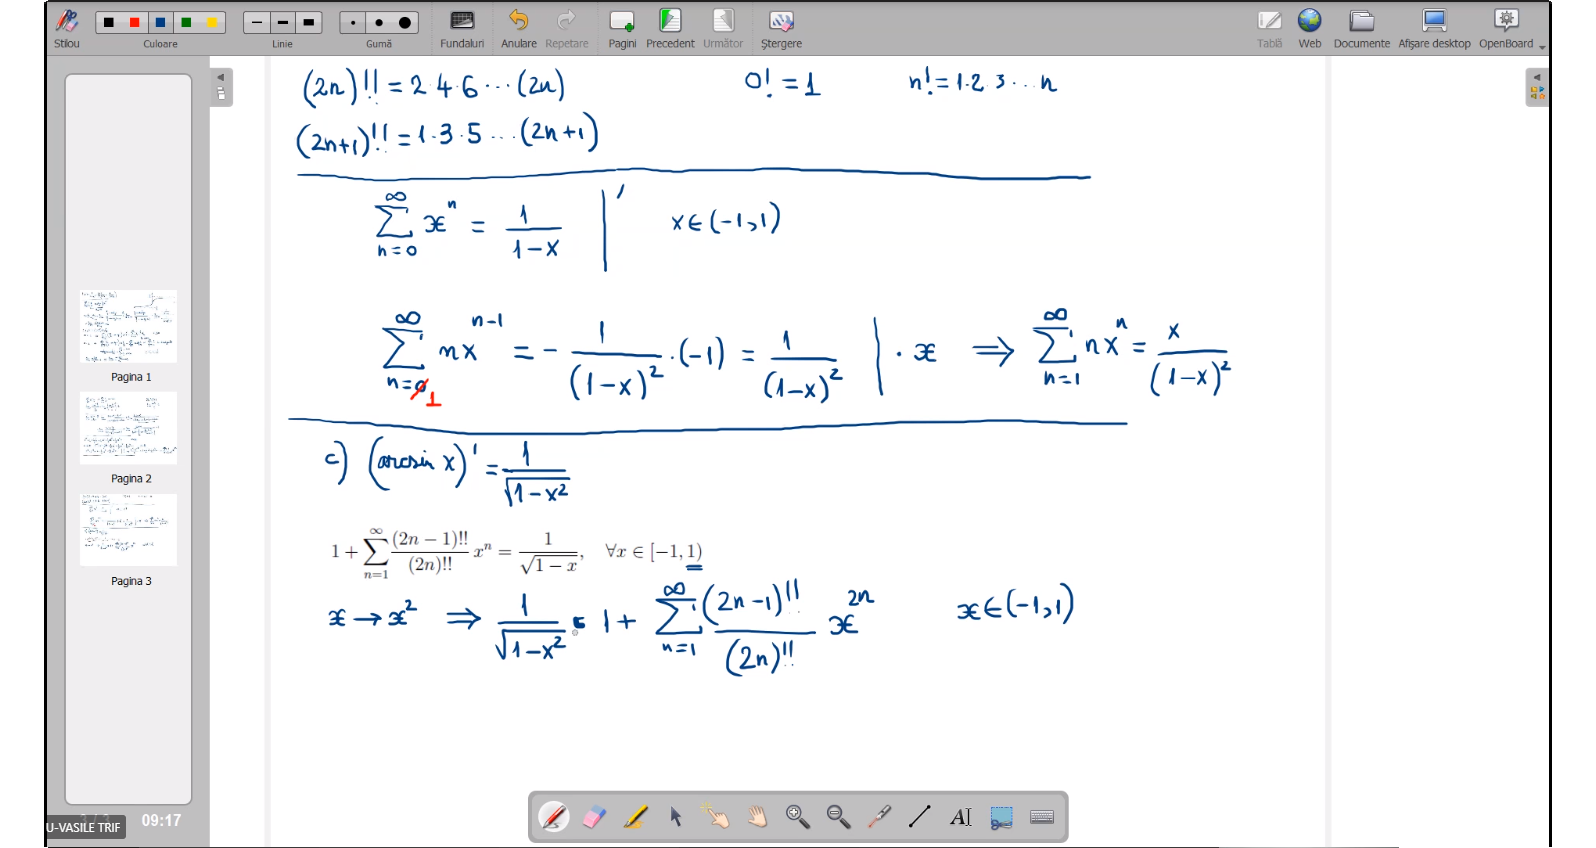 Stilou Culoare Linie Gumă Fundaluri Anulare Repetare Pagini Precedent Următor Ștergere Tablă Web Documente Afișare desktop OpenBoard
(2n)!! = 2·4·6···(2n) 0! = 1 n! = 1·2·3···n
(2n+1)!! = 1·3·5···(2n+1)
∑_{n=0}^{∞} x^n = 1/(1-x) |' x∈(-1,1)
∑_{n=0̸ 1}^{∞} nx^{n-1} = - 1/(1-x)^2 · (-1) = 1/(1-x)^2 | · x ⟹ ∑_{n=1}^{∞} nx^n = x/(1-x)^2
c) (arcsin x)' = 1/√(1-x^2)
1 + ∑_{n=1}^{∞} (2n-1)!!/(2n)!! x^n = 1/√(1-x), ∀x ∈ [-1, 1)
x → x^2 ⟹ 1/√(1-x^2) = 1 + ∑_{n=1}^{∞} (2n-1)!!/(2n)!! x^{2n} x∈(-1,1)
Pagina 1
Pagina 2
Pagina 3
09:17
U-VASILE TRIF
AI